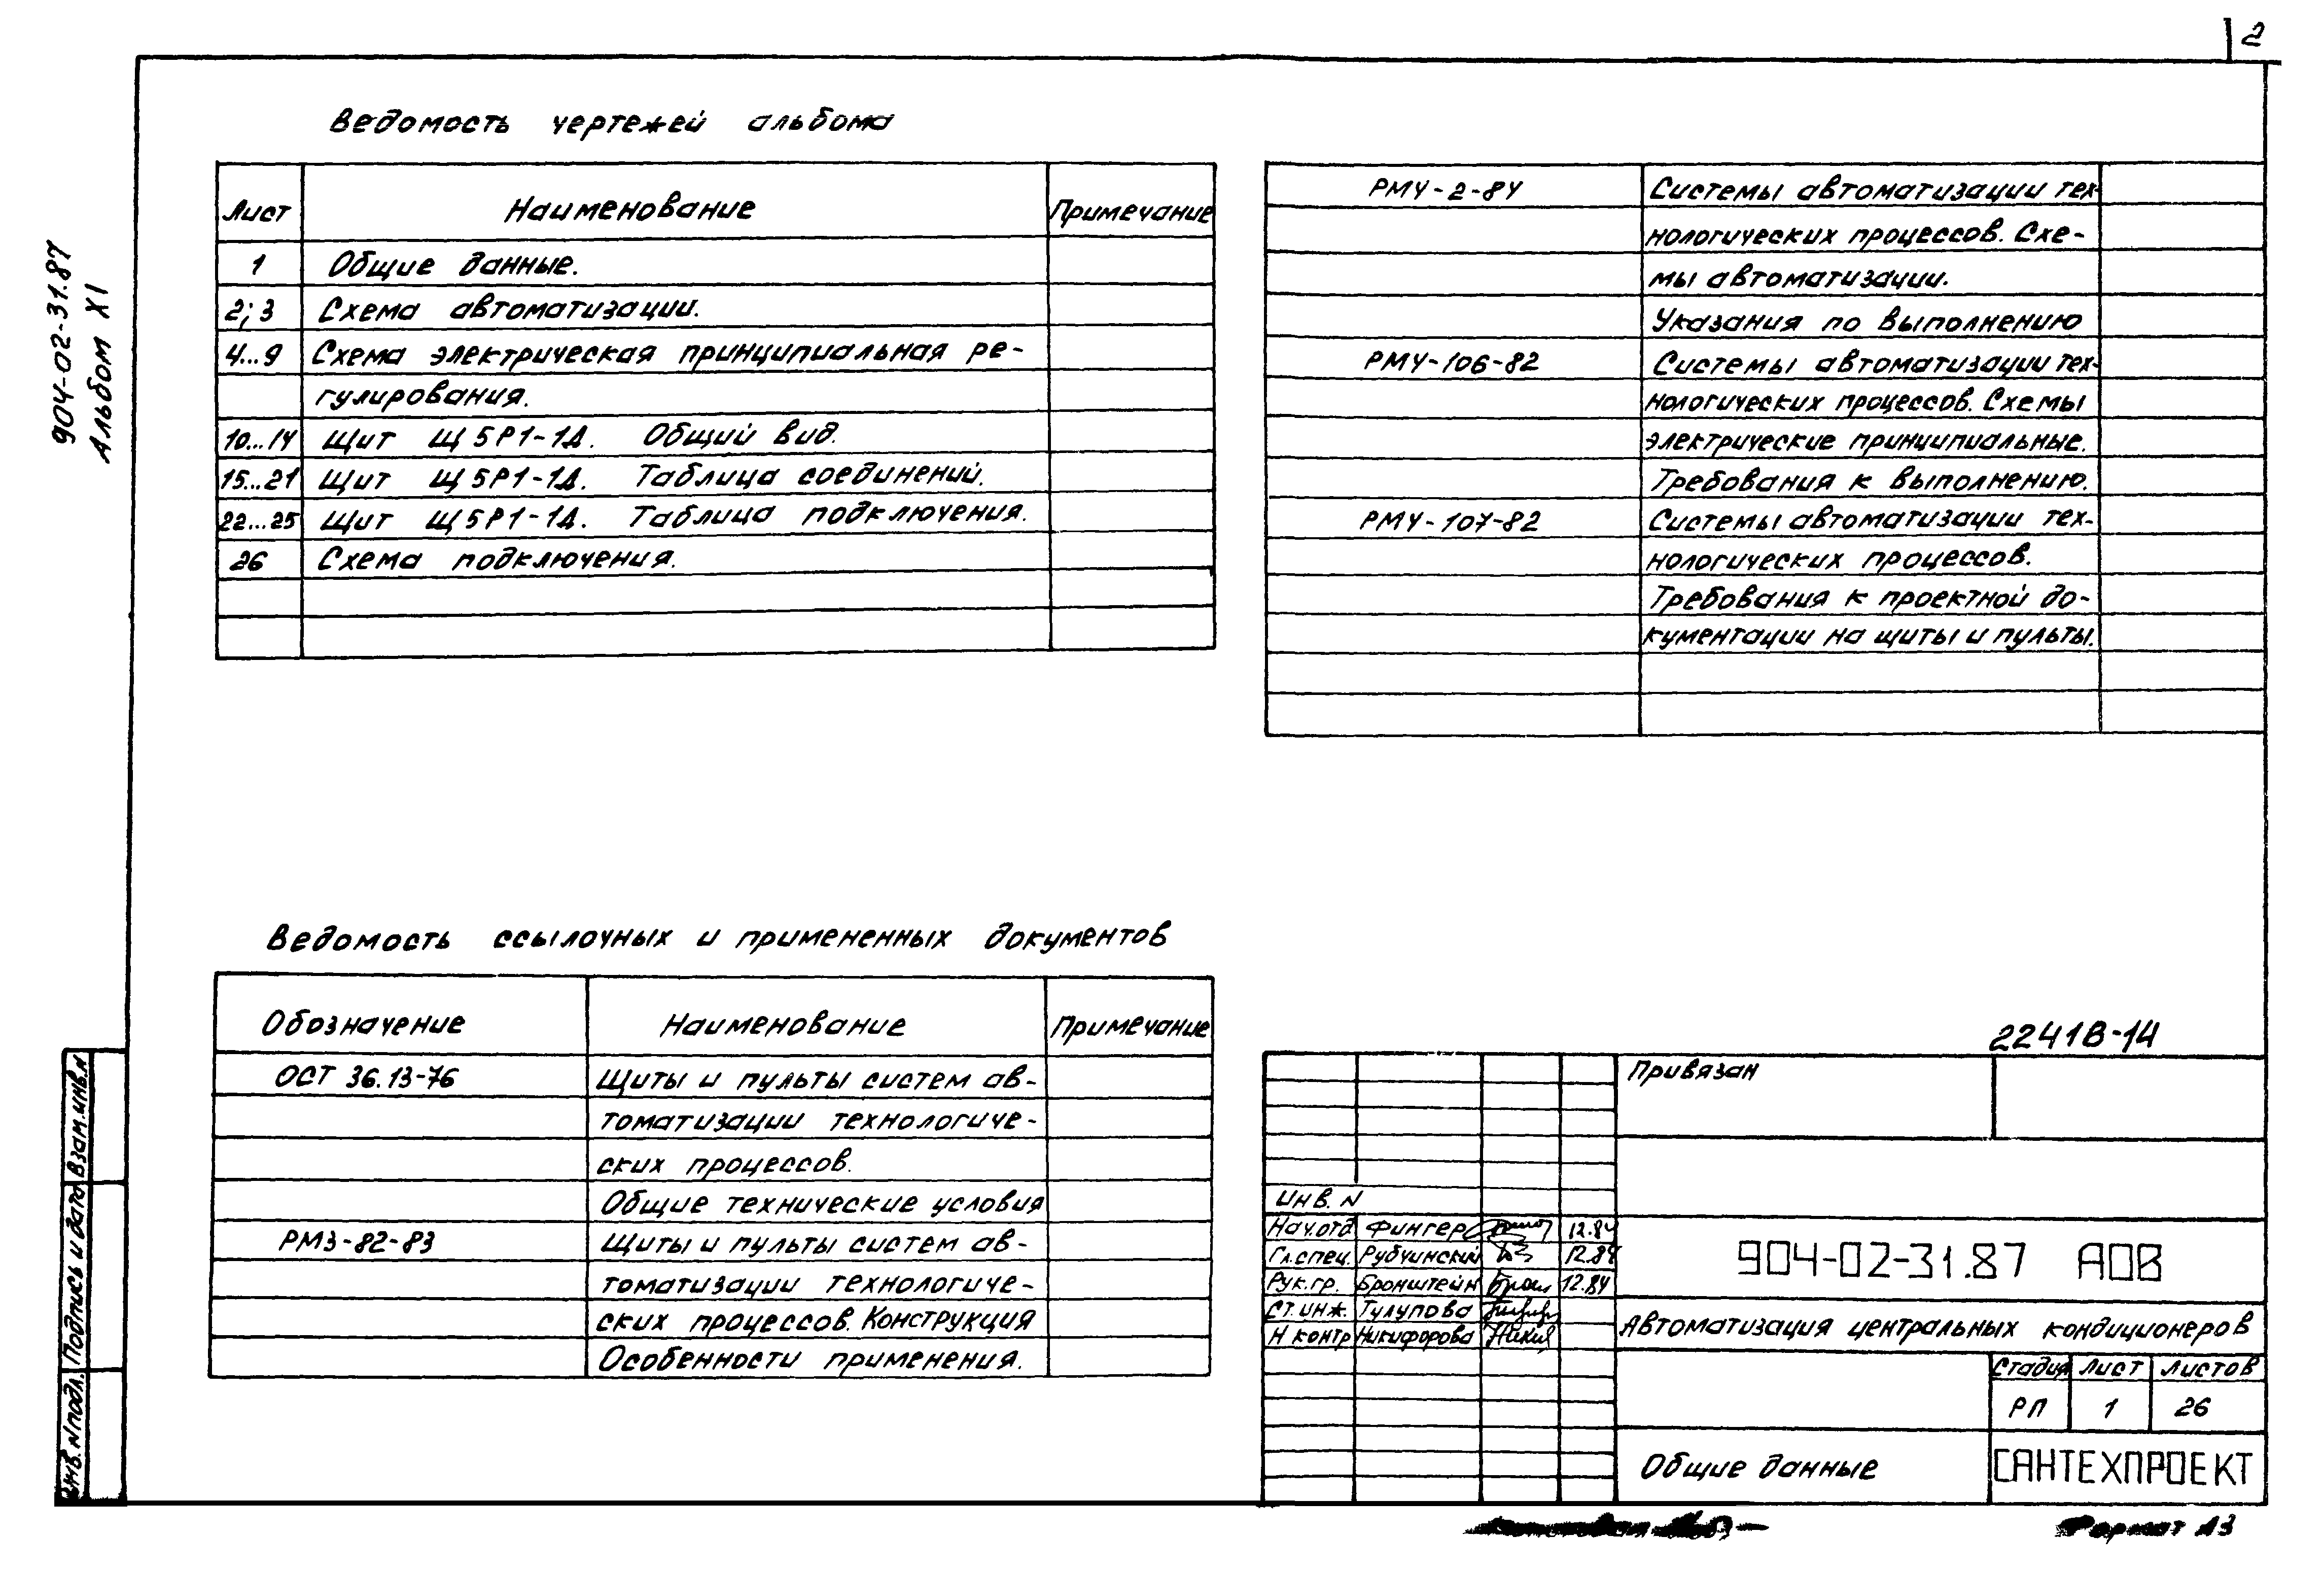 2
904-02-31.87
Альбом XI
Ведомость чертежей альбома
Лист Наименование Примечание
1 Общие данные.
2; 3 Схема автоматизации.
4...9 Схема электрическая принципиальная ре-
гулирования.
10...14 Щит Щ5Р1-1Д. Общий вид.
15...21 Щит Щ5Р1-1Д. Таблица соединений.
22...25 Щит Щ5Р1-1Д. Таблица подключения.
26 Схема подключения.
РМ4-2-84 Системы автоматизации тех-
нологических процессов. Схе-
мы автоматизации.
Указания по выполнению
РМ4-106-82 Системы автоматизации тех-
нологических процессов. Схемы
электрические принципиальные.
Требования к выполнению.
РМ4-107-82 Системы автоматизации тех-
нологических процессов.
Требования к проектной до-
кументации на щиты и пульты.
Ведомость ссылочных и примененных документов
Обозначение Наименование Примечание
ОСТ 36.13-76 Щиты и пульты систем ав-
томатизации технологиче-
ских процессов.
Общие технические условия
РМ3-82-83 Щиты и пульты систем ав-
томатизации технологиче-
ских процессов. Конструкция
Особенности применения.
2241В-14
Привязан
Инв. N
Нач.отд Фингер 12.84
Гл.спец. Рубчинский 12.84
Рук.гр. Бронштейн 12.84
Ст.инж. Тулупова
Н контр Никифорова
904-02-31.87 АОВ
Автоматизация центральных кондиционеров
Стадия Лист Листов
РП 1 26
Общие данные
САНТЕХПРОЕКТ
Формат А3
Взам.инв.N
Подпись и дата
Инв.N подл.